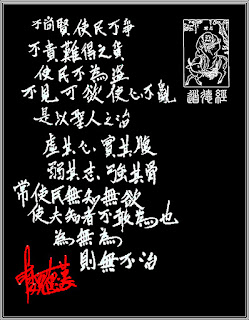 不尚賢使民不爭
不貴難得之貨
使民不為盜
不見可欲使心不亂
是以聖人之治
虛其心實其腹
弱其志強其骨
常使民無知無欲
使夫知者不敢為也
為無為
則無不治
道德經